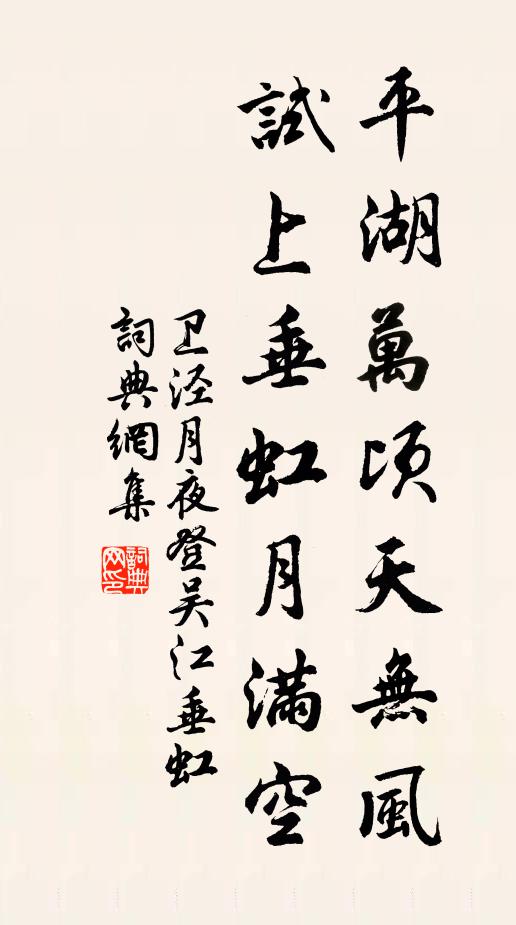 平湖萬頃天無風
試上垂虹月滿空
卫泾月夜登吴江垂虹
詞典網集
詞典网印